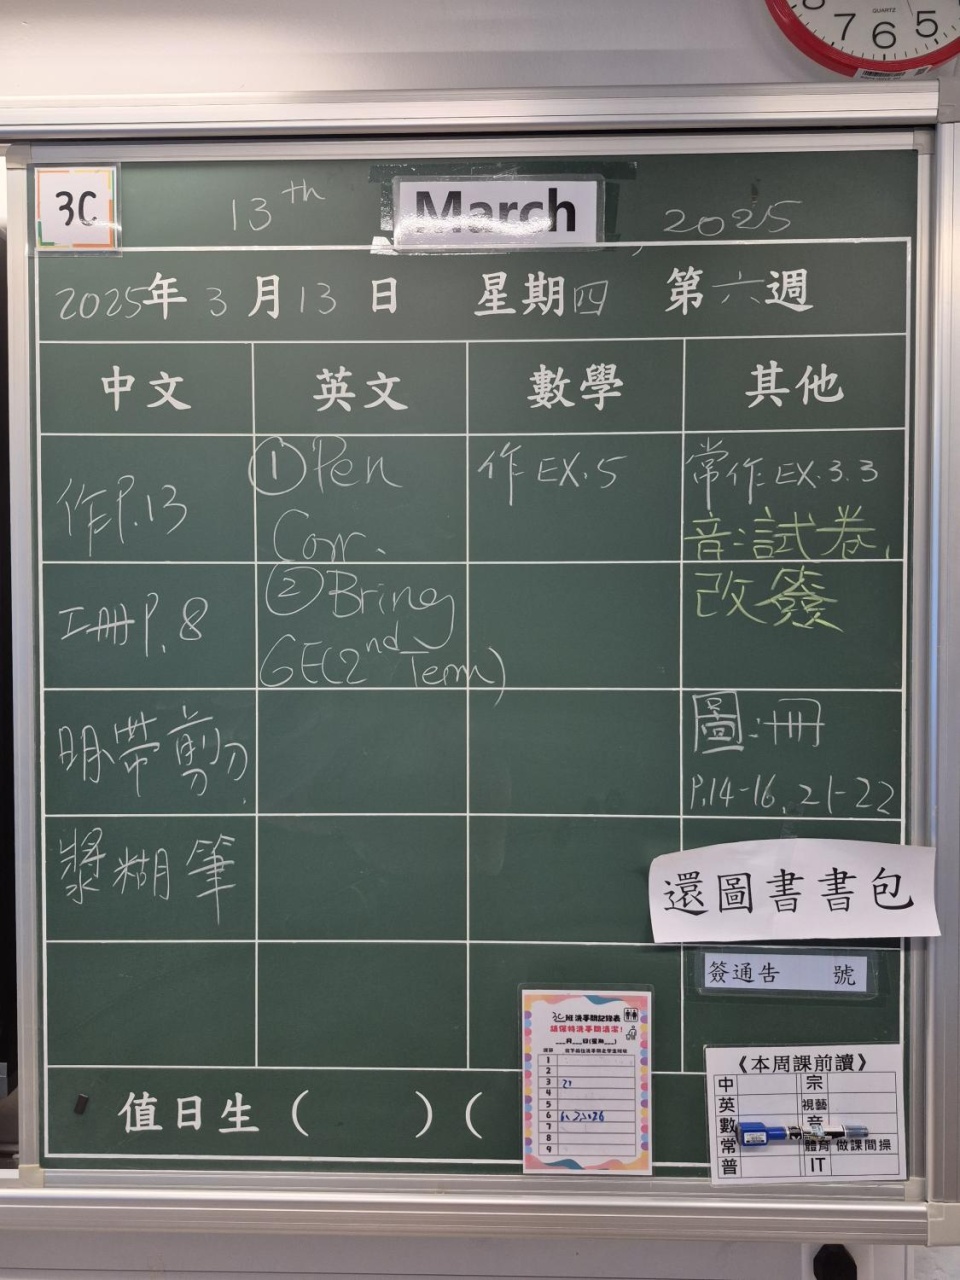 QUARTZ
7 6 5
3C
13th March, 2025
2025年3月13日 星期四 第六週
中文 英文 數學 其他
作P.13
工冊P.8
明帶剪刀、
漿糊筆
①Pen
Corr.
②Bring
GE(2nd Term)
作EX.5
常作EX.3.3
音:試卷,
改簽
圖:冊
P.14-16, 21-22
還圖書書包
簽通告 號
值日生( )(
3C班洗手間記錄表
請保持洗手間清潔!
___月___日(星期___)
1
2
3 21
4
5
6
7
8
9
《本周課前讀》
中 宗
英 視藝
數 音
常 體育 做課間操
普 IT